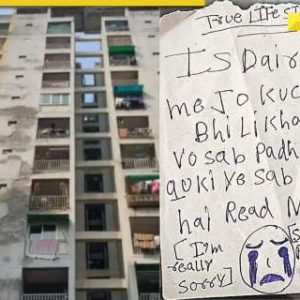 TRUE LIFE S
IS Dair
me Jo kuc
Bhi Likha
vo sab Padh
quki Ye sab
hai Read
[I'm
really
sorry]